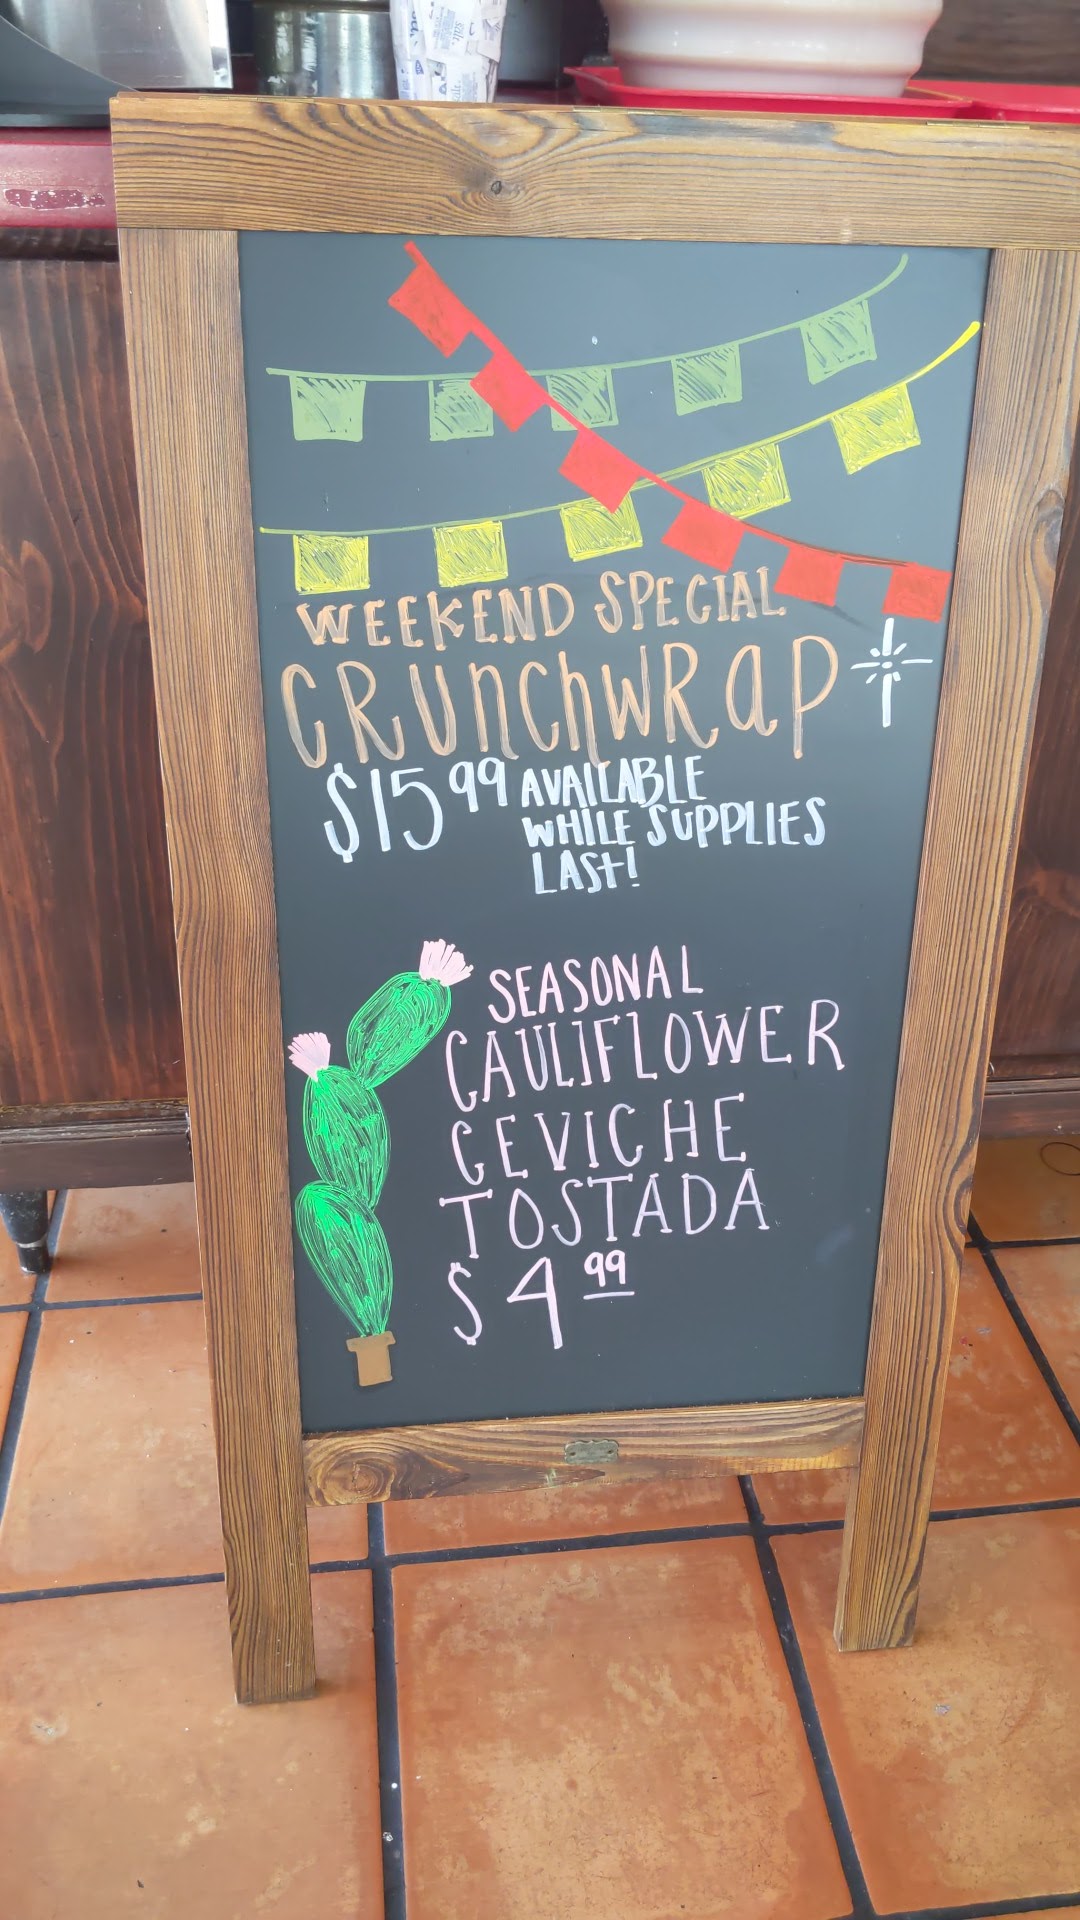 WEEKEND SPECIAL
CRUNCHWRAP
$15.99 AVAILABLE
WHILE SUPPLIES
LAST!
SEASONAL
CAULIFLOWER
CEVICHE
TOSTADA
$4.99